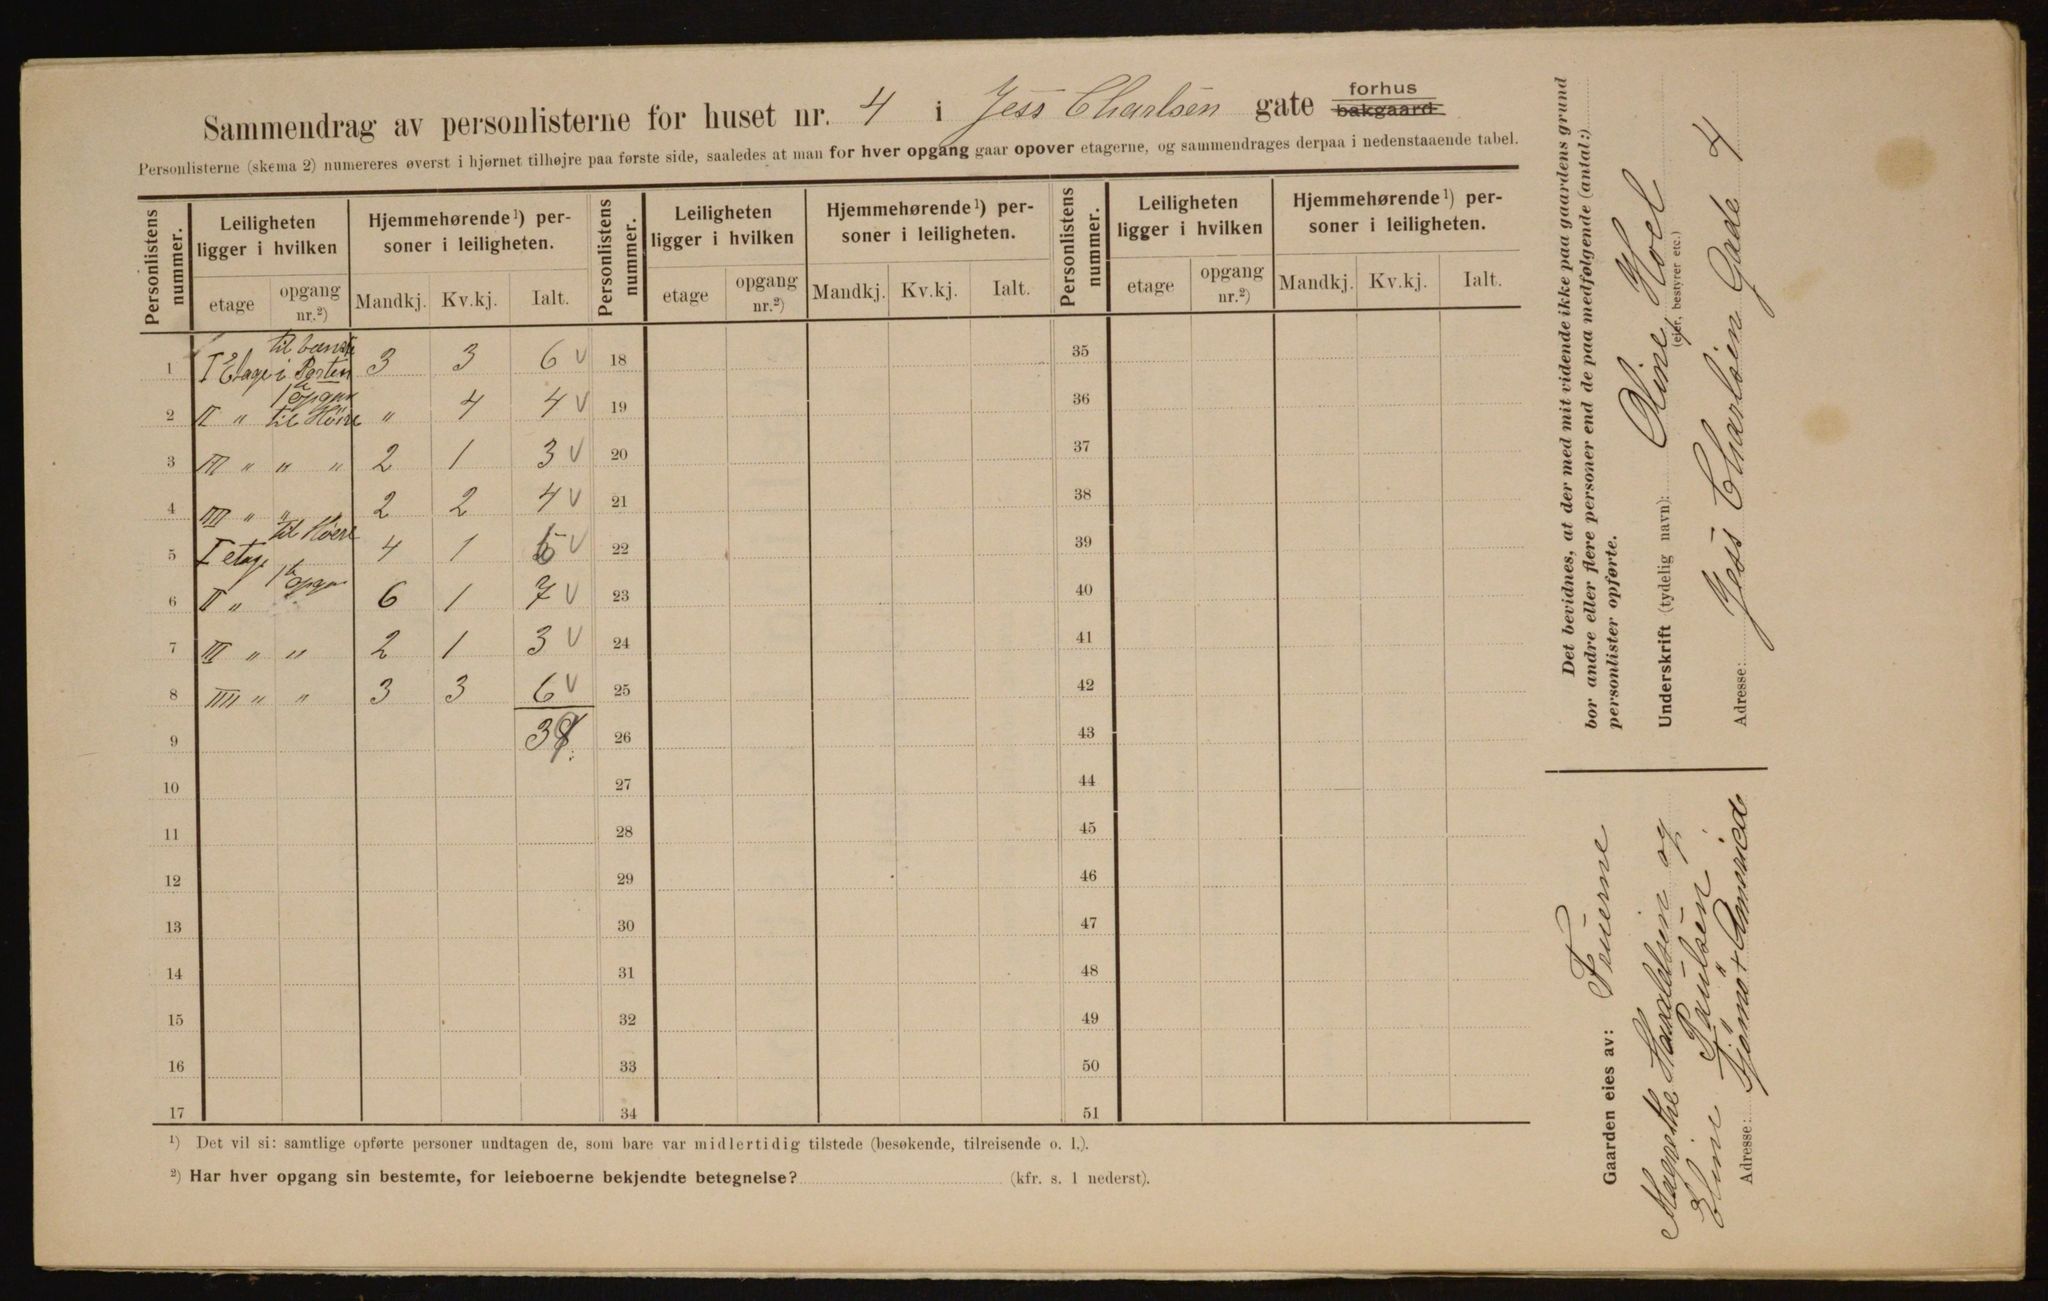 Sammendrag av personlisterne for huset nr. 4 i Jess Charlsen gate forhus bakgaard.
Personlisterne (skema 2) numereres øverst i hjørnet tilhøjre paa første side, saaledes at man for hver opgang gaar opover etagerne, og sammendrages derpaa i nedenstaaende tabel.
Personlistens nummer. Leiligheten ligger i hvilken Hjemmehørende¹) personer i leiligheten. Personlistens nummer. Leiligheten ligger i hvilken Hjemmehørende¹) personer i leiligheten. Personlistens nummer. Leiligheten ligger i hvilken Hjemmehørende¹) personer i leiligheten.
etage opgang nr.²) Mandkj. Kv.kj. Ialt. etage opgang nr.²) Mandkj. Kv.kj. Ialt. etage opgang nr.²) Mandkj. Kv.kj. Ialt.
1 I Etage i Porten 3 3 6 v 18 35
2 II " til Höire " 4 4 v 19 36
3 III " " " 2 1 3 v 20 37
4 IIII " " 2 2 4 v 21 38
5 I etage til Höere 4 1 5 v 22 39
6 II " 6 1 7 v 23 40
7 III " " 2 1 3 v 24 41
8 IIII " " 3 3 6 v 25 42
9 26 43
10 27 44
11 28 45
12 29 46
13 30 47
14 31 48
15 32 49
16 33 50
17 34 51
¹) Det vil si: samtlige opførte personer undtagen de, som bare var midlertidig tilstede (besøkende, tilreisende o. l.).
²) Har hver opgang sin bestemte, for leieboerne bekjendte betegnelse? (kfr. s. 1 nederst).
Det bevidnes, at der med mit vidende ikke paa gaardens grund
bor andre eller flere personer end de paa medfølgende (antal:)
personlister opførte.
Underskrift (tydelig navn): Oline Hoel
(eier, bestyrer etc.)
Adresse: Jess Charlsen Gade 4
Gaarden eies av: Fruerne
Magrethe Haraldsen og
Eline Paulsen
Adresse: Tjömö + Amerika